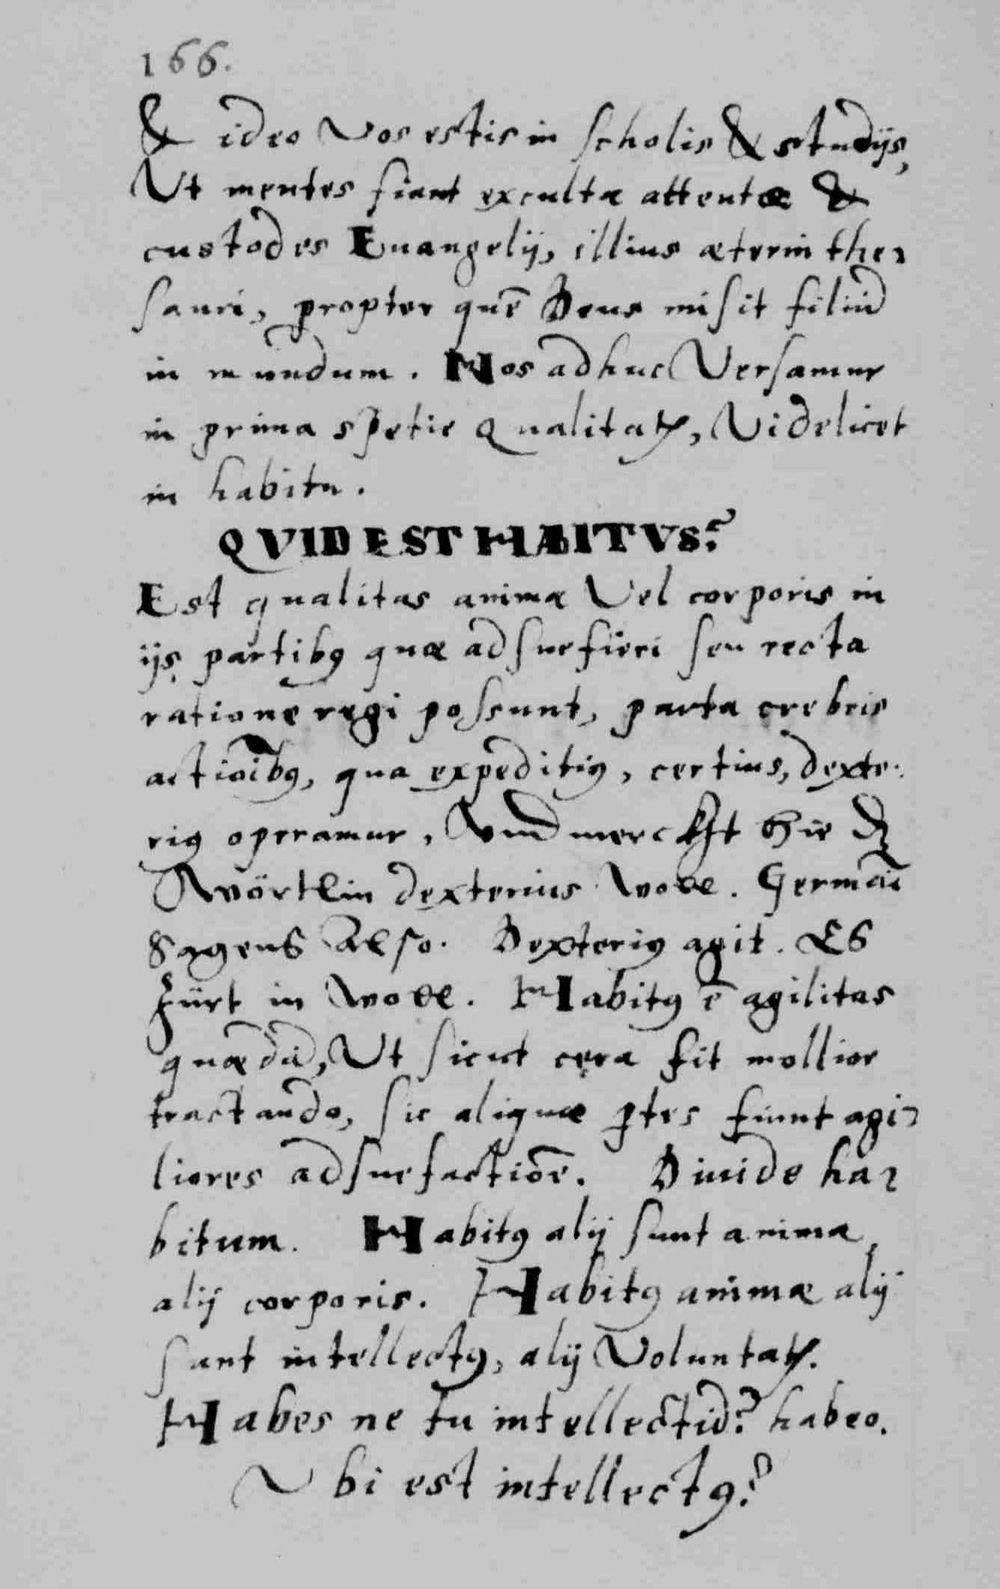 166.
& ideo Vos estis in scholis & studijs,
Vt mentes fiant excultæ attentæ &
custodes Euangelij, illius æterni the⸗
sauri, propter quẽ Deus misit filiũ
in mundum. Nos adhuc Versamur
in prima spetie Qualitatꝭ, Videlicet
in habitu.
QVID EST HABITVS?
Est qualitas animæ Vel corporis in
ijs partibꝰ quæ adsuefieri seu recta
ratione regi possunt, parta crebris
actioĩbꝰ, qua expeditiꝰ, certius, dexte⸗
riꝰ operamur, Vnd merckt hie dz
Wörtlin dexterius woll. Germãi
sagens also. Dexteriꝰ agit. Es
fürt in woll. Habitꝰ ẽ agilitas
quædã, Vt sicut cera fit mollior
tractando, sic aliquæ ꝑtes fiunt agi⸗
liores adsuefactiõe. Diuide ha⸗
bitum. Habitꝰ alij sunt animæ,
alij corporis. Habitꝰ animæ alij
sunt intellectꝰ, alij Voluntatꝭ.
Habes ne tu intellectũ? habeo.
Vbi est intellectꝰ?